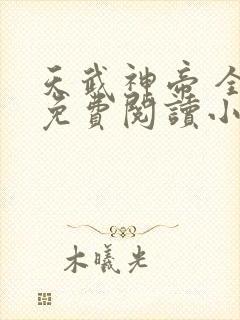 天武神帝全
免費閱讀小
木曦光